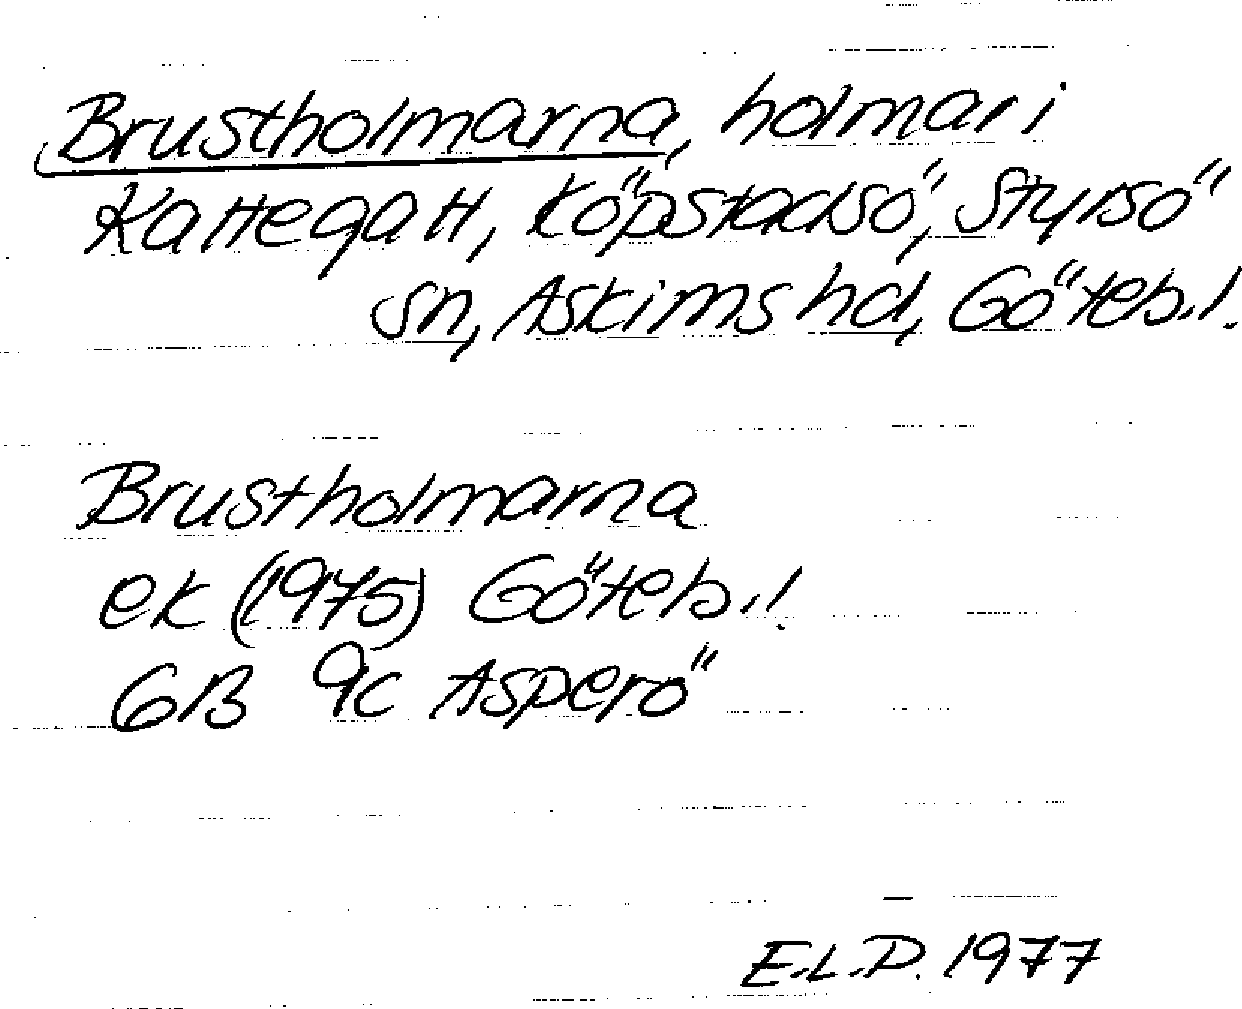 Brustholmarna, holmar i
Kattegatt, Köpstadsö, Styrsö
sn, Askims hd, Göteb.l.
Brustholmarna
ek (1975) Göteb.l.
6B 9c Asperö
E.L.D. 1977